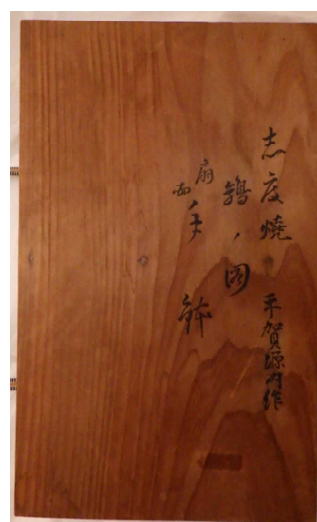 志度燒 平賀源内作
鶉ノ図
扇面手鉢